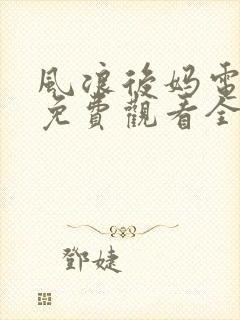 風浪後媽電
免費觀看全
鄧婕